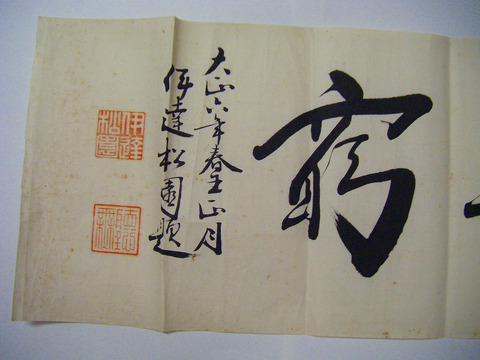 窮
大正六年春王正月
伊達松園題
伊達松園